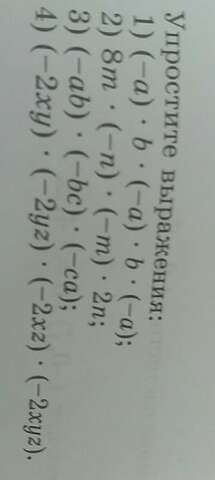 Упростите выражения:
1) (−a) · b · (−a) · b · (−a);
2) 8m · (−n) · (−m) · 2n;
3) (−ab) · (−bc) · (−ca);
4) (−2xy) · (−2yz) · (−2xz) · (−2xyz).